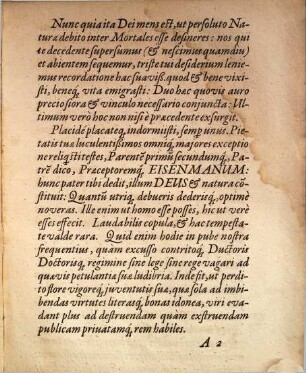 Nunc quia ita Dei mens est, ut persoluto Na-
turæ debito inter Mortales esse desineres: nos qui
te decedente supersumus (& nescimus quamdiu)
et abientem sequemur, triste tui desiderium lenie-
mus recordatione hac suavissî. quod & bene vixi-
sti, beneq́; vita emigrasti: Duo hæc quovis auro
preciosiora & vinculo necessario conjuncta: Ul-
timum verò hoc non nisi è præcedente exsurgit.
Placidè placateq́; indormîsti, semp unus. Pie-
tatis tuæ luculentissimos omniq́; majores exceptio
ne reliq̃sti testes, Parentẽ primũ secundumq́;, Pa-
trẽ dico, Præceptoremq́; EISENMANUM:
hunc pater tibi dedit, illum DEUS & natura cõ-
stituit: Quantũ utriq́; debueris dederisq́;, optimè
noveras. Ille enim ut homo esse posses, hic ut verè
esses effecit. Laudabilis copula, & hac tempesta-
te valdè rara. Quid enim hodie in pube nostra
frequentius, quàm excusso contritoq́; Ductoris
Doctorisq́; regimine sine lege sine rege vagari ad
quævis petulantiæ suæ ludibria. Inde fit, ut perdi-
to flore vigoreq́; juventutis suæ, quæ sola ad im-
bibendas virtutes literasq́; bonas idonea, viri eva-
dant plus ad destruendam quàm exstruendam
publicam privatamq́; rem habiles.
A 2